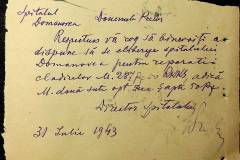 Spitalul
Domanovca
Domnule Pretor
Respectuos vă rog să binevoiți a
dispune să se elibereze spitalului
Domanovca pentru reparatii
cladirilor M. 28 adică
M. două sute opt
Director Spitalului
31 Iulie 1943